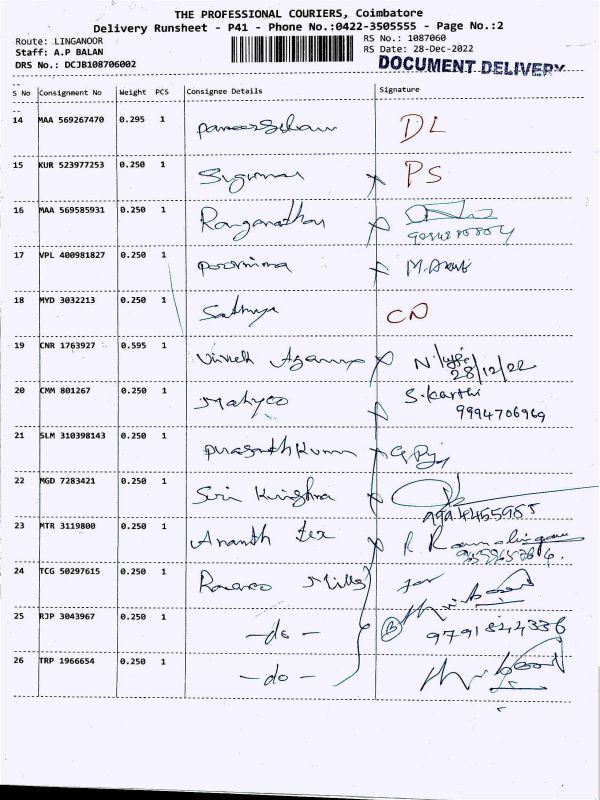 THE PROFESSIONAL COURIERS, Coimbatore
Delivery Runsheet - P41 - Phone No.:0422-3505555 - Page No.:2
Route: LINGANOOR
Staff: A.P BALAN
DRS No.: DCJB108706002
RS No.: 1087060
RS Date: 28-Dec-2022
DOCUMENT DELIVERY
S No Consignment No Weight PCS Consignee Details Signature
14 MAA 569267470 0.295 1 DL
15 KUR 523977253 0.250 1 Sugumar PS
16 MAA 569585931 0.250 1 Ranganathan
17 VPL 400981827 0.250 1 poornima
18 MYD 3032213 0.250 1 Sathya CN
19 CNR 1763927 0.595 1 28/12/22
20 CMM 801267 0.250 1 Mahyco S. Karthi
9994706969
21 SLM 310398143 0.250 1 prasanth Kumar
22 MGD 7283421 0.250 1 Sri Krishna
23 MTR 3119800 0.250 1 Ananth Tex R. Ramalingam
24 TCG 50297615 0.250 1 Mills for
25 RJP 3043967 0.250 1 -do- B 9791844336
26 TRP 1966654 0.250 1 -do-